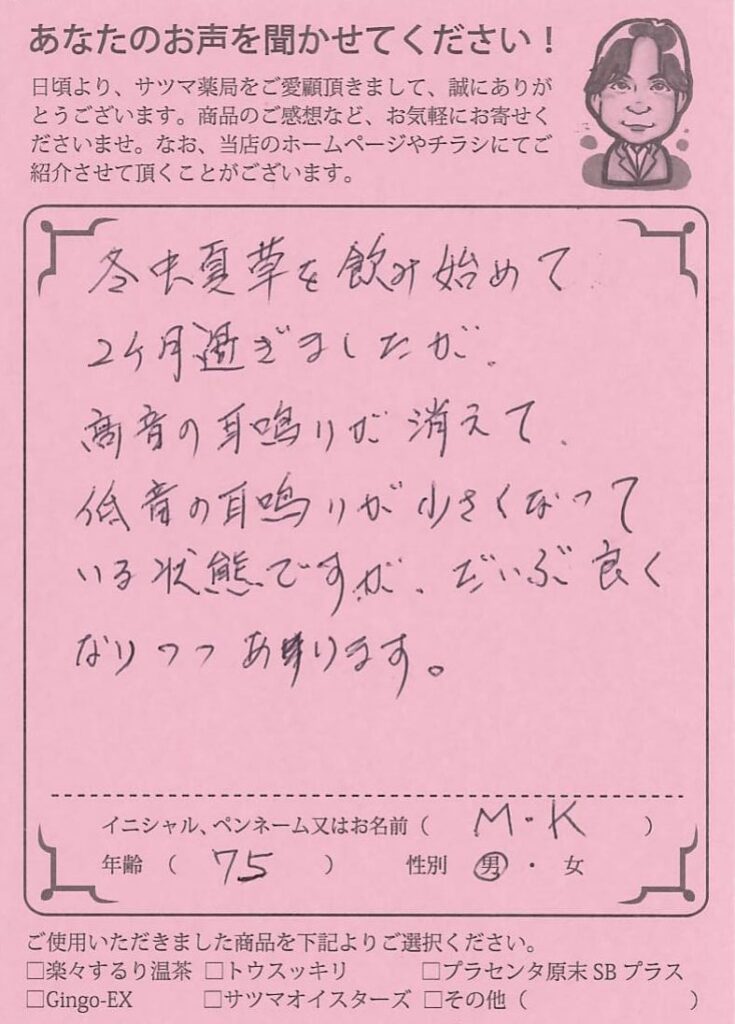 あなたのお声を聞かせてください！
日頃より、サツマ薬局をご愛顧頂きまして、誠にありが
とうございます。商品のご感想など、お気軽にお寄せく
ださいませ。なお、当店のホームページやチラシにてご
紹介させて頂くことがございます。
冬虫夏草を飲み始めて
2ケ月過ぎましたが、
高音の耳鳴りが消えて、
低音の耳鳴りが少さくなって
いる状態ですが、だいぶ良く
なりつつあります。
イニシャル、ペンネーム又はお名前（ M・K ）
年齢（ 75 ） 性別 男・女
ご使用いただきました商品を下記よりご選択ください。
□楽々するり温茶 □トウスッキリ □プラセンタ原末SBプラス
□Gingo-EX □サツマオイスターズ □その他（ ）